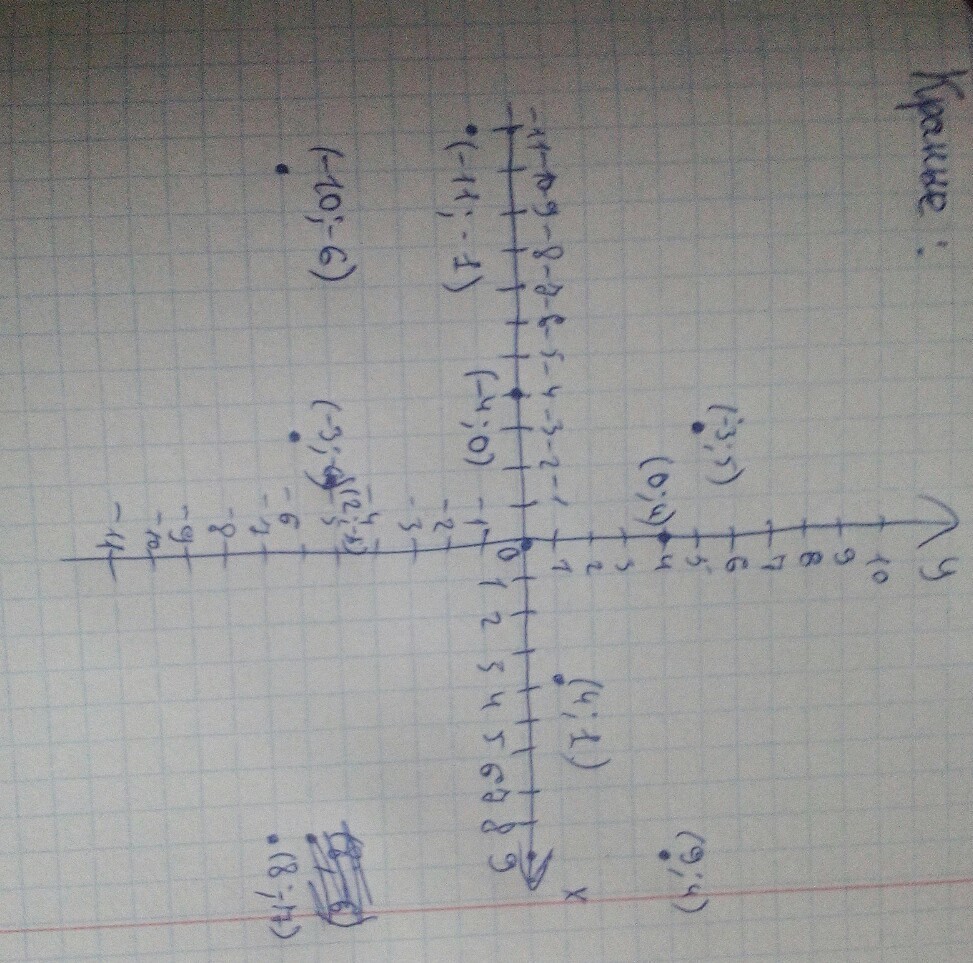 y
10
9
8
7
6
(-3;5)
5
(9;4)
(0;4)
4
3
2
(4;1)
1
x
-11 -10 -9 -8 -7 -6 -5 -4 -3 -2 -1
0 1 2 3 4 5 6 7 8 9
(-4;0)
(-11;-1)
-1
-2
-3
-4
-5
(-10;-6)
-6
(8;-7)
-7
-8
-9
-10
-11